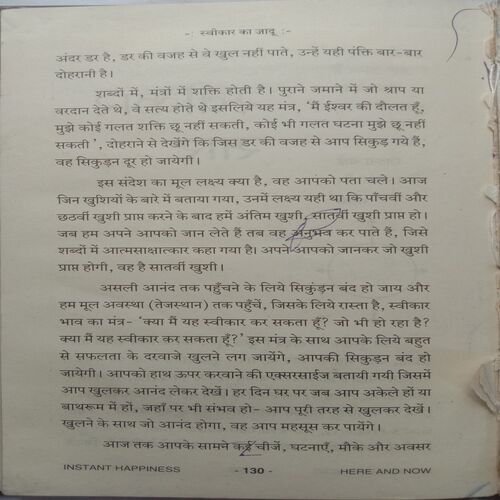 -: स्वीकार का जादू :-
अंदर डर है, डर की वजह से वे खुल नहीं पाते, उन्हें यही पंक्ति बार-बार
दोहरानी है।
शब्दों में, मंत्रों में शक्ति होती है। पुराने जमाने में जो श्राप या
वरदान देते थे, वे सत्य होते थे इसलिये यह मंत्र, 'मैं ईश्वर की दौलत हूँ,
मुझे कोई गलत शक्ति छू नहीं सकती, कोई भी गलत घटना मुझे छू नहीं
सकती', दोहराने से देखेंगे कि जिस डर की वजह से आप सिकुड़ गये हैं,
वह सिकुड़न दूर हो जायेगी।
इस संदेश का मूल लक्ष्य क्या है, वह आपको पता चले। आज
जिन खुशियों के बारे में बताया गया, उनमें लक्ष्य यही था कि पाँचवीं और
छठवीं खुशी प्राप्त करने के बाद हमें अंतिम खुशी, सातवीं खुशी प्राप्त हो।
जब हम अपने आपको जान लेते हैं तब वह अनुभव कर पाते हैं, जिसे
शब्दों में आत्मसाक्षात्कार कहा गया है। अपने आपको जानकर जो खुशी
प्राप्त होगी, वह है सातवीं खुशी।
असली आनंद तक पहुँचने के लिये सिकुड़न बंद हो जाय और
हम मूल अवस्था (तेजस्थान) तक पहुँचें, जिसके लिये रास्ता है, स्वीकार
भाव का मंत्र- 'क्या मैं यह स्वीकार कर सकता हूँ? जो भी हो रहा है?
क्या मैं यह स्वीकार कर सकता हूँ?' इस मंत्र के साथ आपके लिये बहुत
से सफलता के दरवाजे खुलने लग जायेंगे, आपकी सिकुड़न बंद हो
जायेगी। आपको हाथ ऊपर करवाने की एक्सरसाईज बतायी गयी जिसमें
आप खुलकर आनंद लेकर देखें। हर दिन घर पर जब आप अकेले हों या
बाथरूम में हों, जहाँ पर भी संभव हो- आप पूरी तरह से खुलकर देखें।
खुलने के साथ जो आनंद होगा, वह आप महसूस कर पायेंगे।
आज तक आपके सामने कई चीजें, घटनाएँ, मौके और अवसर
INSTANT HAPPINESS - 130 - HERE AND NOW